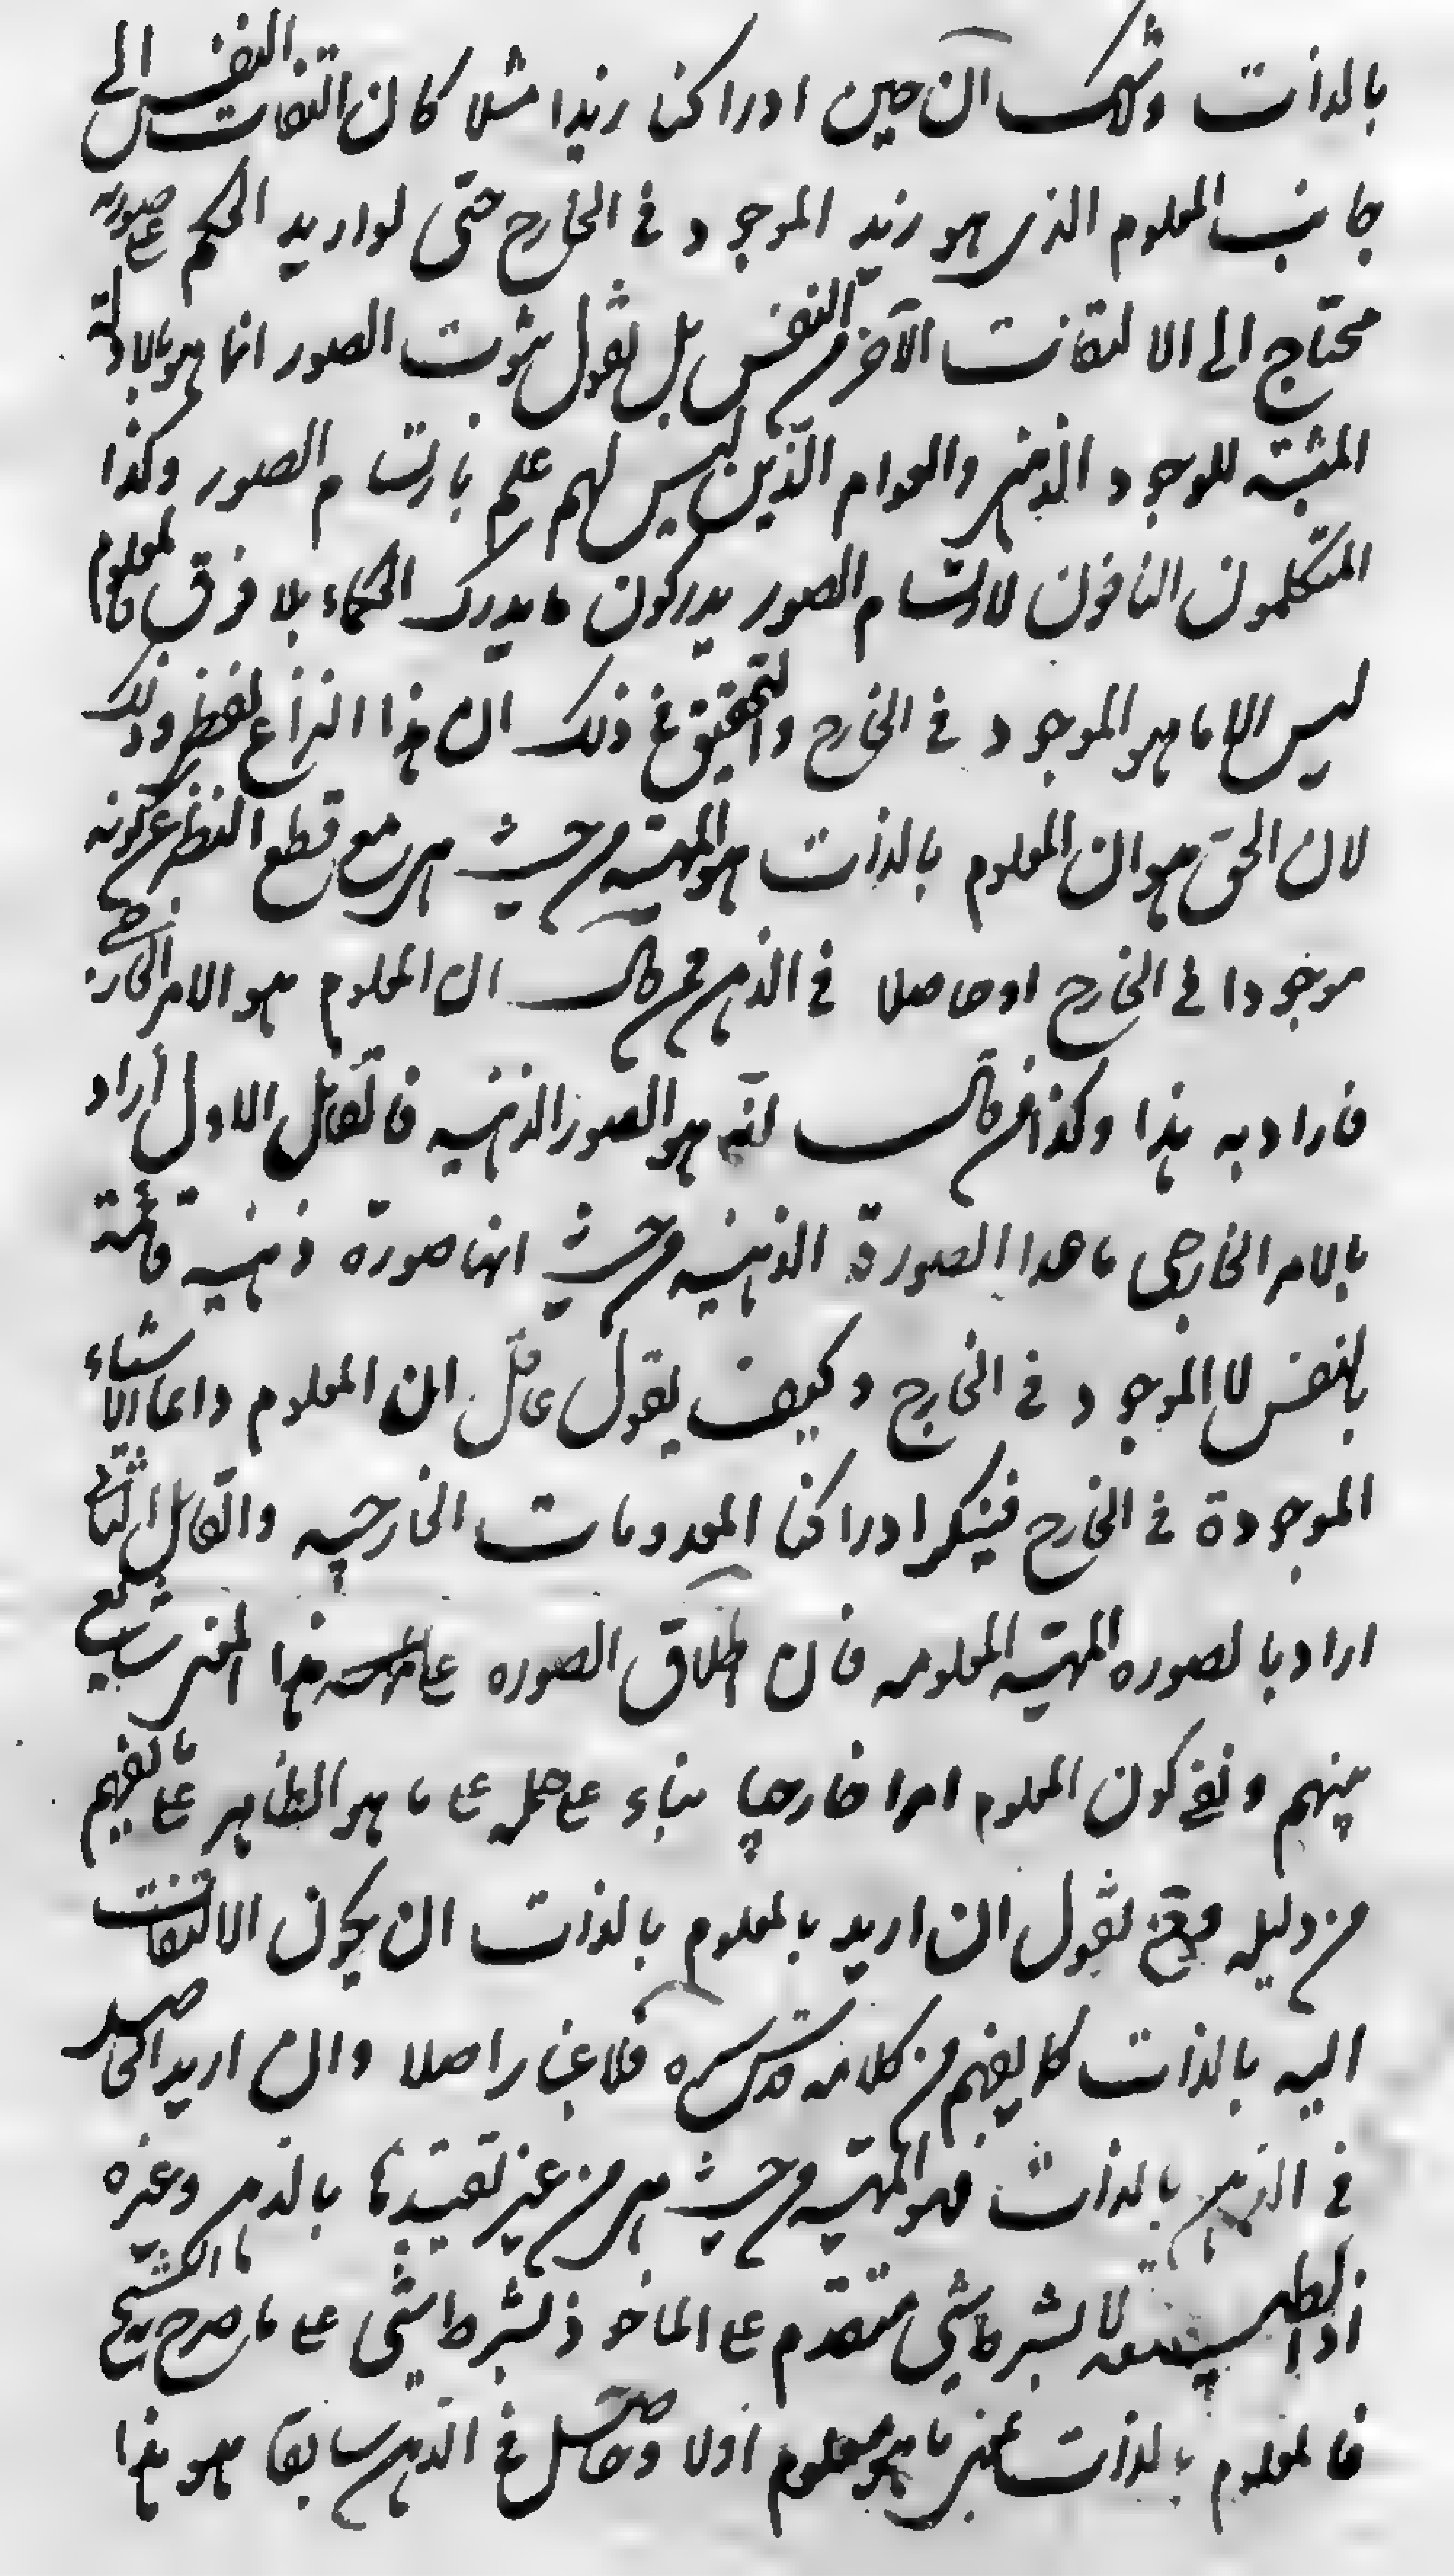 بالذات ولا شك ان حين ادراكنا زيدا مثلا كان التفات النفس الى
جانب المعلوم الذى هو زيد الموجود فى الخارج حتى لو اريد الحكم على صورته
محتاج الى الالتفات الآخر من النفس بل نقول ثبوت الصور انما هو بالادلة
المثبتة للوجود الذهنى والعوام الذين ليس لهم علم بارتسام الصور وكذا
المتكلمون النافون لارتسام الصور يدركون ما يدرك الحكماء بلا فرق فالمعلوم
ليس الا ما هو الموجود فى الخارج والتحقيق فى ذلك ان هذا النزاع لفظى وذلك
لان الحق هو ان المعلوم بالذات هو المهية من حيث هى مع قطع النظر عن كونه
موجودا فى الخارج او حاصلا فى الذهن فمن قال ان المعلوم هو الامر الخارجى
فاراد به هذا وكذا من قال انه هو الصور الذهنية فالقائل الاول أراد
بالامر الخارجى ما عدا الصورة الذهنية من حيث انها صورة ذهنية قائمة
بالنفس لا الموجود فى الخارج وكيف يقول عاقل ان المعلوم دائما الاشياء
الموجودة فى الخارج فينكر ادراكنا المعدومات الخارجيه والقائل الثانى
اراد بالصوره المهية المعلومه فان اطلاق الصوره على هذا المعنى شايع
بينهم ونفى كون المعلوم امرا خارجيا بناء على حمله على ما هو الظاهر على ما يفهم
من دليله وقع نقول ان اريد بالمعلوم بالذات ان يكون الالتفات
اليه بالذات كما يفهم من كلامه قدس سره فلا غبار اصلا وان اريد الحاصل
فى الذهن بالذات فهو المهية من حيث هى من غير تقييدها بالذهن وغيره
اذ الطبيعة لا بشرط شئ متقدم على الماخوذ بشرط شئ على ما صرح به الشيخ
فالمعلوم بالذات بمعنى ما هو معلوم اولا وحاصل فى الذهن سابقا هو هذا